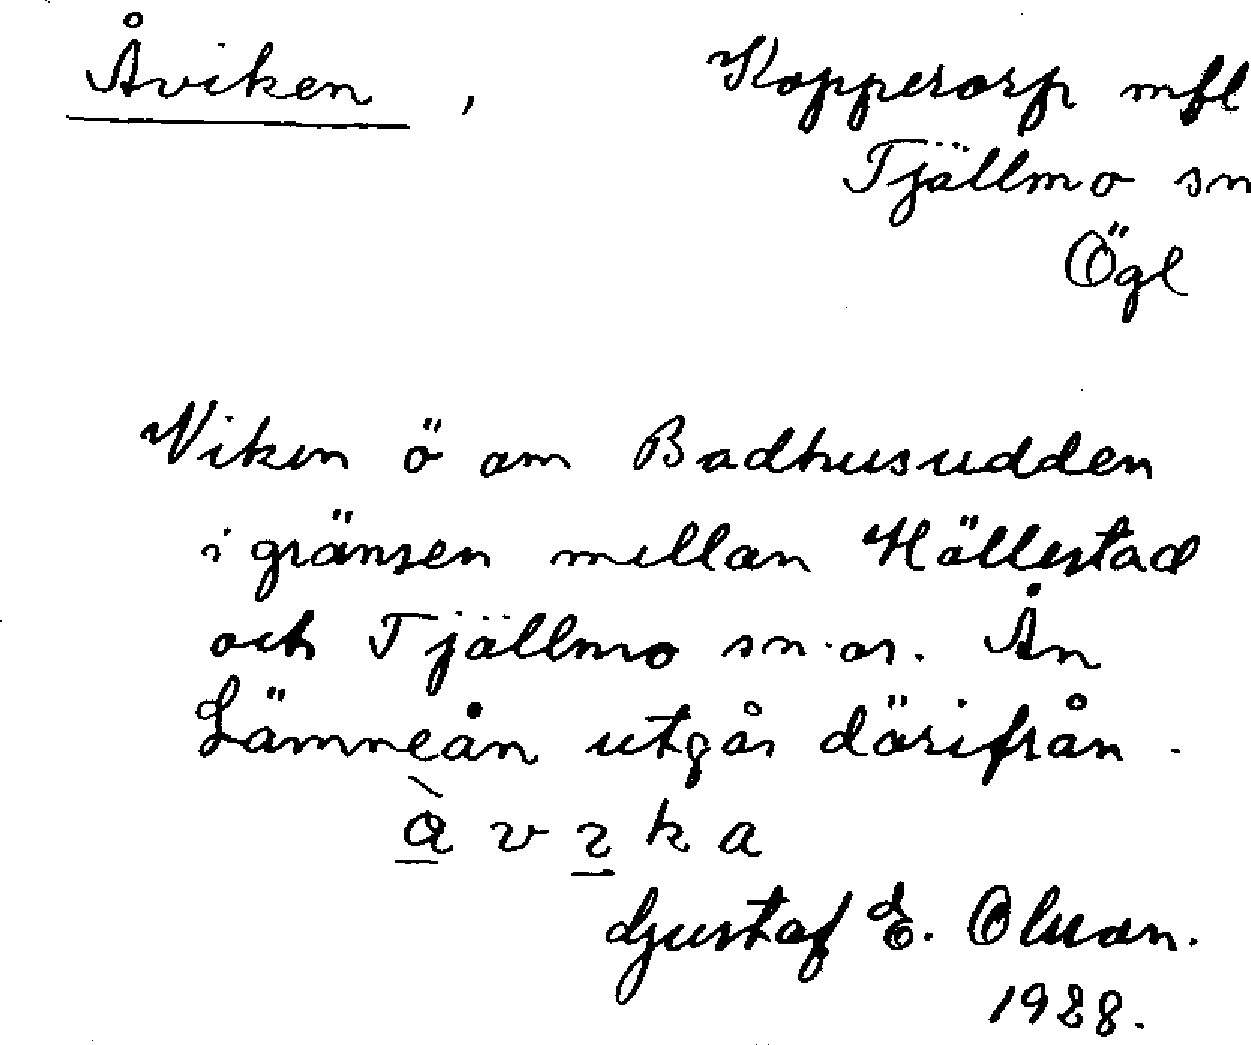 Åviken, Koppetorp mfl
Tjällmo sn
Ögl
Viken ö om Badhusudden
i gränsen mellan Hällestad
och Tjällmo sn.ar. Ån
Lämneån utgår därifrån.
Gustaf E. Olsson.
1928.